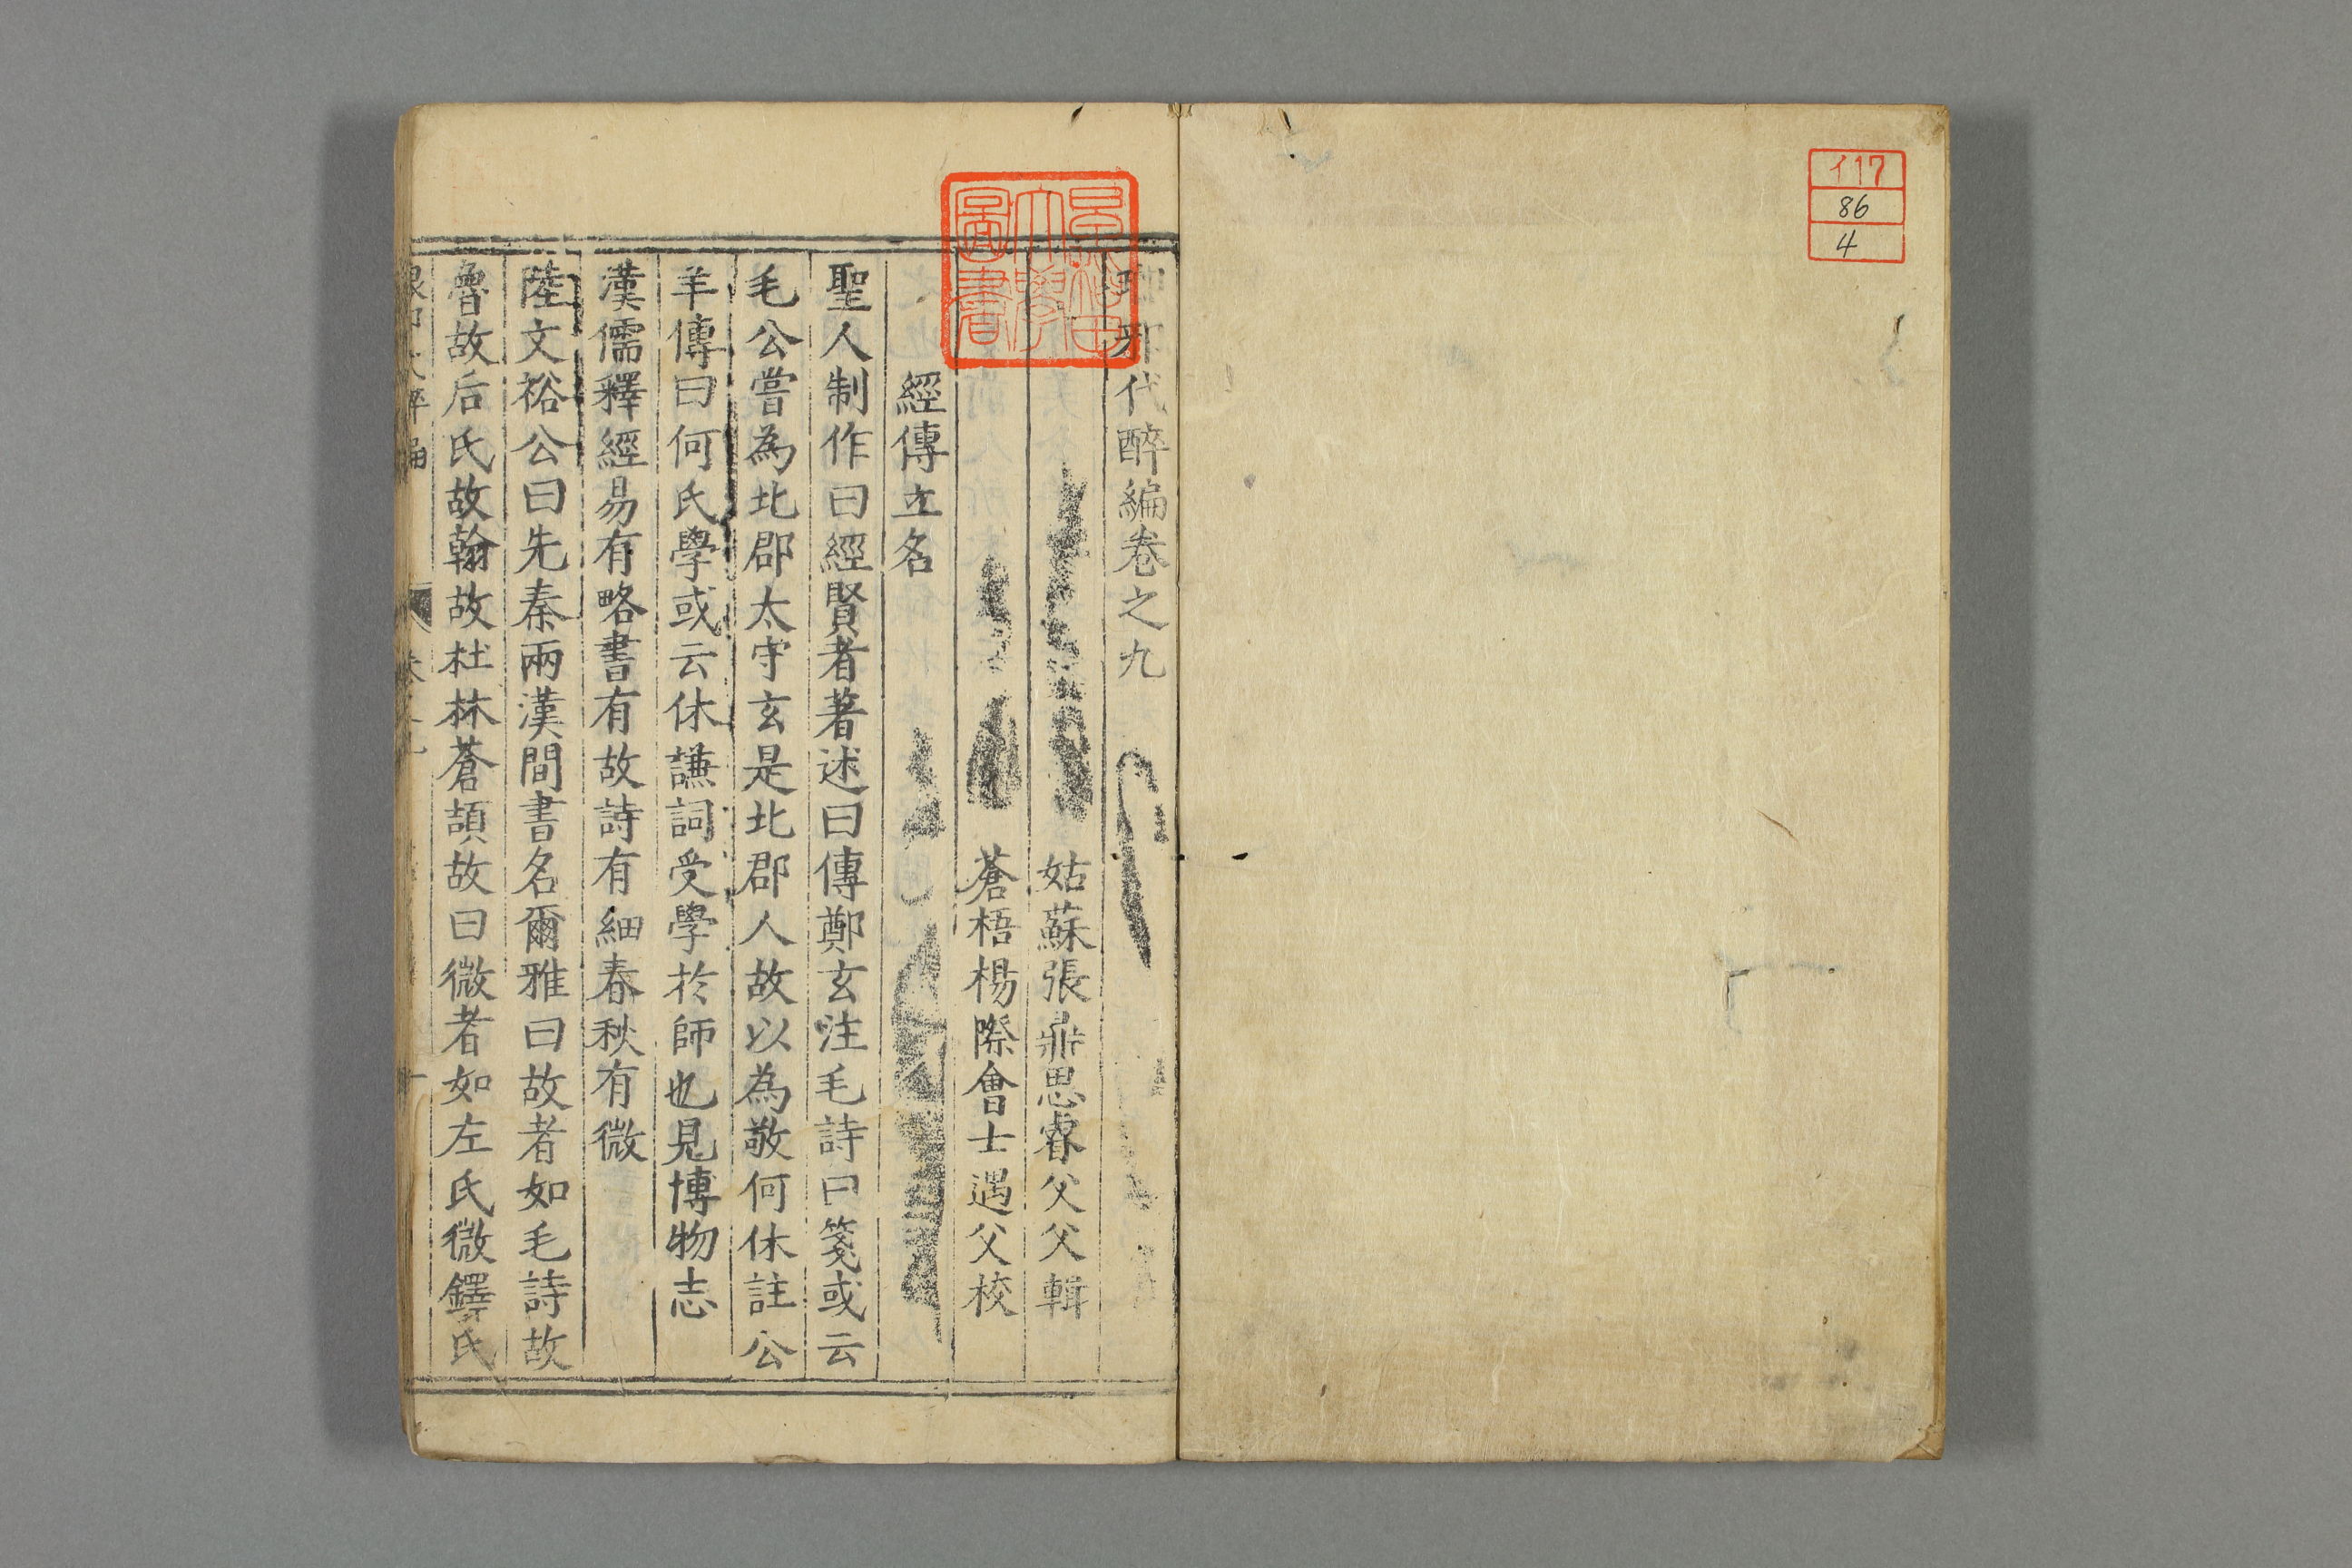 イ17
86
4
琅邪代醉編卷之九
姑蘇張鼎思睿父父輯
蒼梧楊際會士遇父校
經傳立名
聖人制作曰經賢者著述曰傳鄭玄注毛詩曰箋或云
毛公嘗為北郡太守玄是北郡人故以為敬何休註公
羊傳曰何氏學或云休謙詞受學於師也見博物志
漢儒釋經易有略書有故詩有細春秋有微
陸文裕公曰先秦兩漢間書名爾雅曰故者如毛詩故
魯故后氏故翰故杜林蒼頡故曰微者如左氏微鐸氏